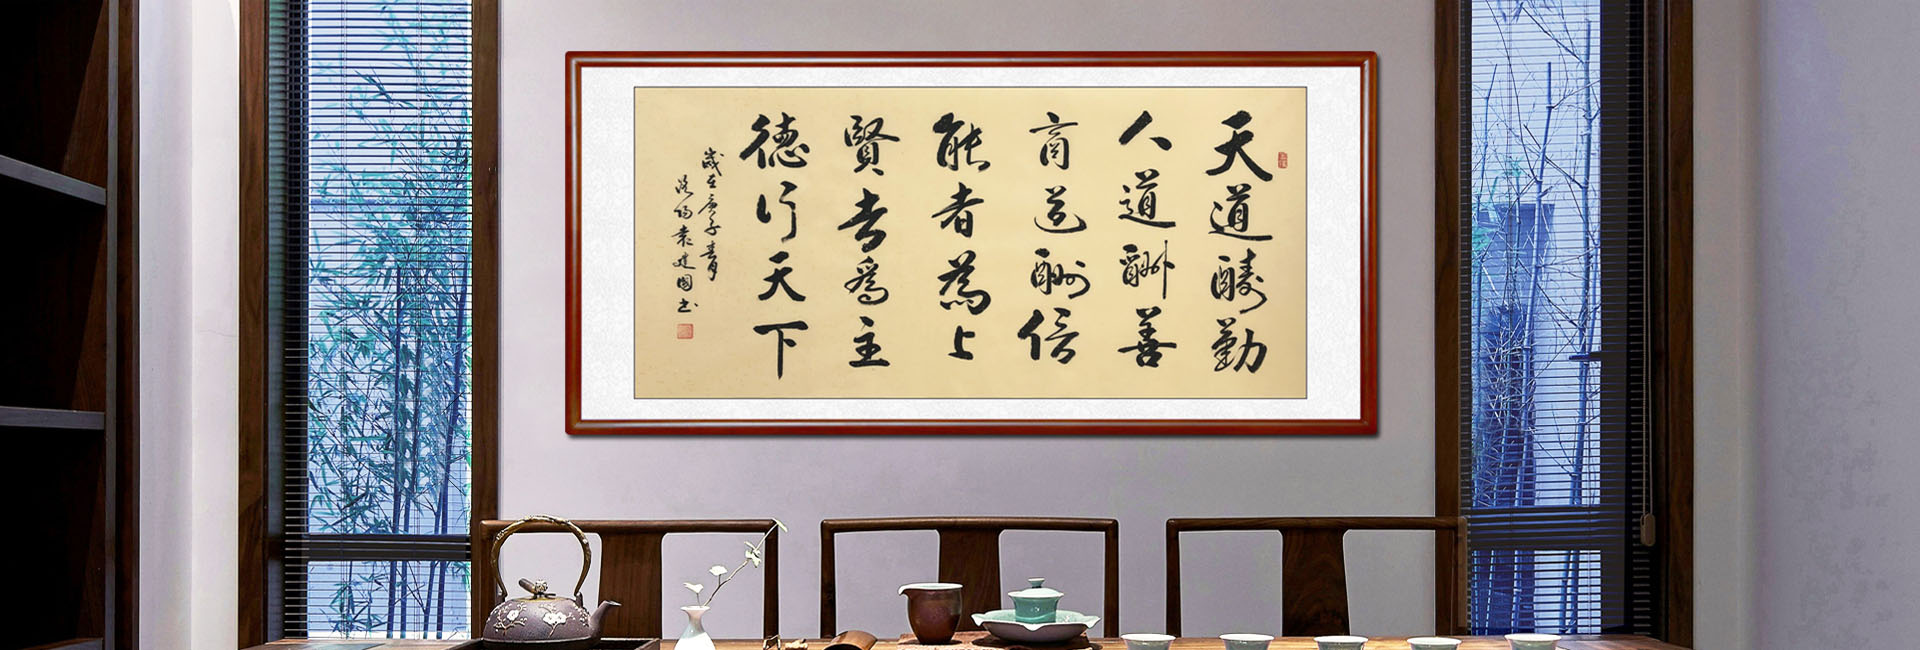 天道酬勤
人道酬善
商道酬信
能者為上
賢者為主
德行天下
歲在庚子春月
洛陽袁建國书